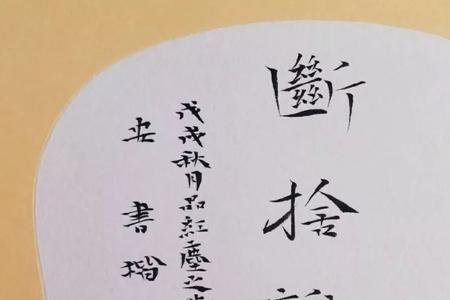 斷捨
戊戌秋月品紅塵之
安書